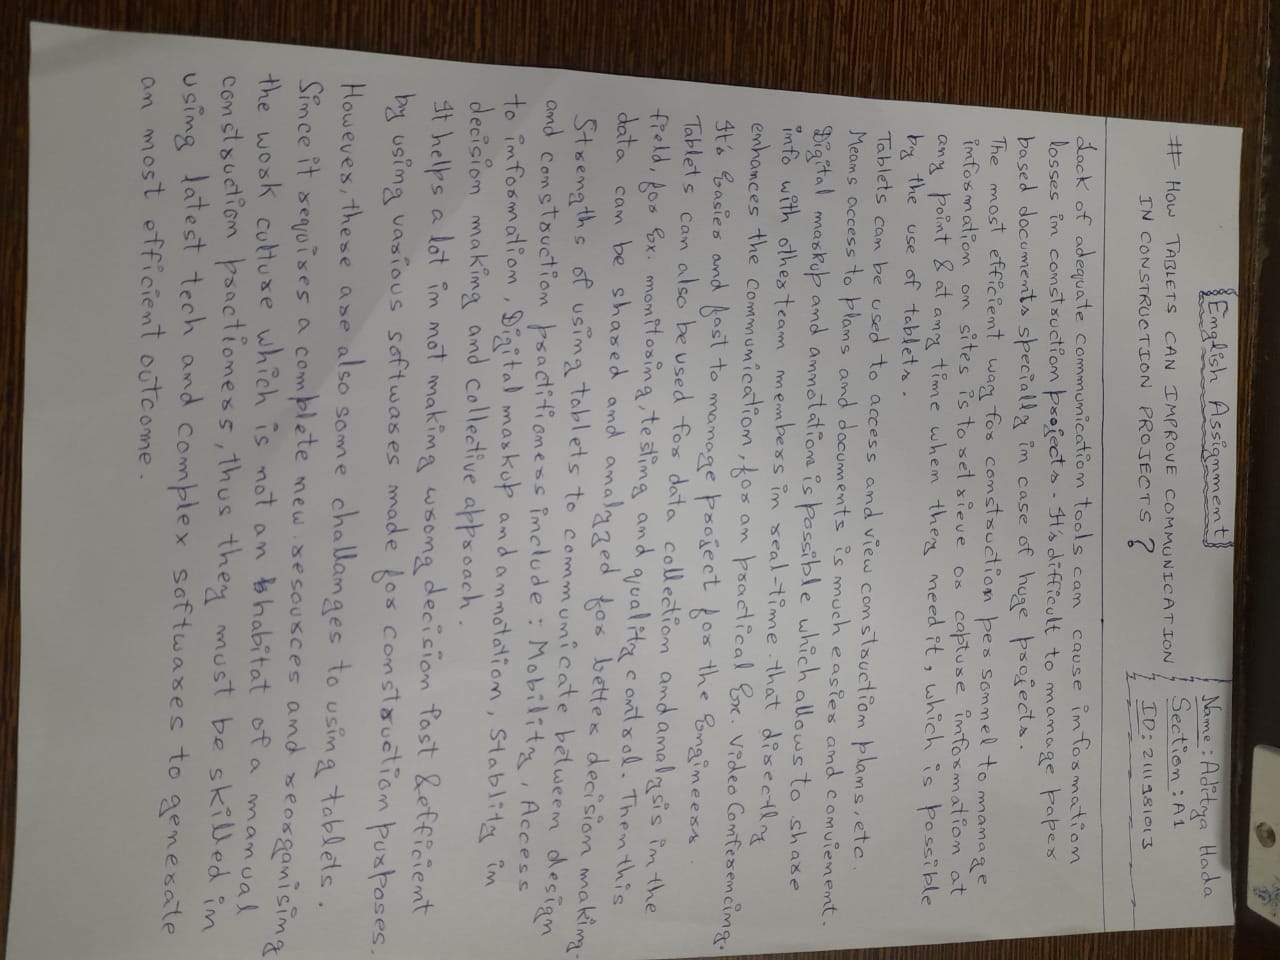 English Assignment
Name : Aditya Hada
Section : A1
ID: 2111981013
# HOW TABLETS CAN IMPROVE COMMUNICATION
IN CONSTRUCTION PROJECTS ?
Lack of adequate communication tools can cause information
losses in construction projects. It's difficult to manage paper
based documents specially in case of huge projects.
The most efficient way for construction personnel to manage
information on sites is to retrieve or capture information at
any point & at any time when they need it, which is possible
by the use of tablets.
Tablets can be used to access and view construction plans, etc.
Means access to plans and documents is much easier and convienent.
Digital markup and annotations is possible which allows to share
info with other team members in real-time that directly
enhances the communication, for an practical Ex. Video Conferencing.
It's Easier and fast to manage project for the Engineers.
Tablets can also be used for data collection and analysis in the
field, for Ex. monitoring, testing and quality control. Then this
data can be shared and analyzed for better decision making.
Strengths of using tablets to communicate between design
and construction practitioners include : Mobility, Access
to information, Digital markup and annotation, Stablity in
decision making and collective approach.
It helps a lot in not making wrong decision fast & efficient
by using various softwares made for construction purposes.
However, there are also some challanges to using tablets.
Since it requires a complete new resources and reorganising
the work culture which is not an habitat of a manual
construction practioners, thus they must be skilled in
using latest tech and complex softwares to generate
an most efficient outcome.